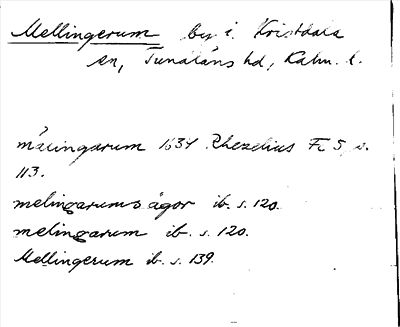 Mellingerum by i. Kristdala
sn, Tunaläns hd, Kalm. l.
mälingarum 1634 Rhezelius Fc 5, s.
113.
melingarums ägor ib. s. 120.
melingarum ib. s. 120.
Mellingerum ib. s. 139.